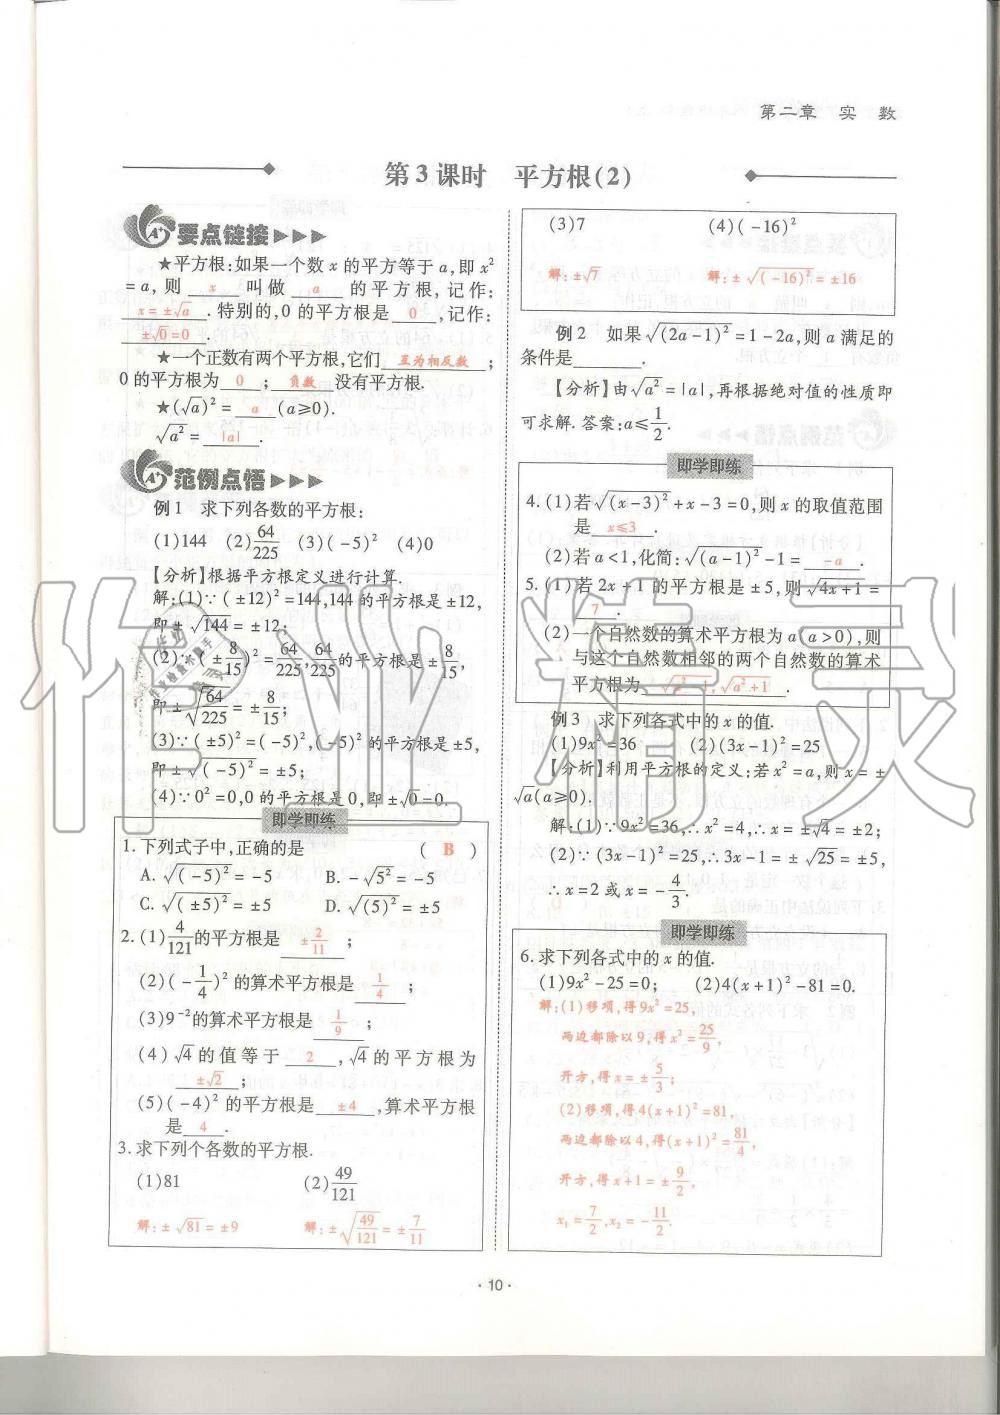 第二章 实 数
第3课时 平方根(2)
要点链接
★平方根:如果一个数 x 的平方等于 a,即 x²
=a,则 x 叫做 a 的平方根,记作:
x=±√a .特别的,0 的平方根是 0 ,记作:
±√0=0 .
★一个正数有两个平方根,它们 互为相反数 ;
0 的平方根为 0 ; 负数 没有平方根.
★(√a)²= a (a≥0).
√a²= |a| .
范例点悟
例1 求下列各数的平方根:
(1)144 (2)64/225 (3)(-5)² (4)0
【分析】根据平方根定义进行计算.
解:(1)∵(±12)²=144,144 的平方根是±12,
即±√144=±12;
(2)∵(±8/15)²=64/225,64/225的平方根是±8/15,
即±√(64/225)=±8/15;
(3)∵(±5)²=(-5)²,(-5)²的平方根是±5,
即±√(-5)²=±5;
(4)∵0²=0,0 的平方根是 0,即±√0=0.
即学即练
1.下列式子中,正确的是 ( B )
A.√(-5)²=-5 B.-√5²=-5
C.√(±5)²=±5 D.√(5)²=±5
2.(1)4/121的平方根是 ±2/11 ;
(2)(-1/4)²的算术平方根是 1/4 ;
(3)9⁻²的算术平方根是 1/9 ;
(4)√4的值等于 2 ,√4的平方根为
±√2 ;
(5)(-4)²的平方根是 ±4 ,算术平方根
是 4 .
3.求下列个各数的平方根.
(1)81 (2)49/121
解:±√81=±9 解:±√(49/121)=±7/11
(3)7 (4)(-16)²
解:±√7 解:±√(-16)²=±16
例2 如果√(2a-1)²=1-2a,则 a 满足的
条件是 .
【分析】由√a²=|a|,再根据绝对值的性质即
可求解.答案:a≤1/2.
即学即练
4.(1)若√(x-3)²+x-3=0,则 x 的取值范围
是 x≤3 .
(2)若 a<1,化简:√(a-1)²-1= -a .
5.(1)若 2x+1 的平方根是±5,则√(4x+1)=
7 .
(2)一个自然数的算术平方根为 a(a>0),则
与这个自然数相邻的两个自然数的算术
平方根为 √(a²-1),√(a²+1) .
例3 求下列各式中的 x 的值.
(1)9x²=36 (2)(3x-1)²=25
【分析】利用平方根的定义:若 x²=a,则 x=±
√a(a≥0).
解:(1)∵9x²=36,∴x²=4,∴x=±√4=±2;
(2)∵(3x-1)²=25,∴3x-1=±√25=±5,
∴x=2 或 x=-4/3.
即学即练
6.求下列各式中的 x 的值.
(1)9x²-25=0; (2)4(x+1)²-81=0.
解:(1)移项,得 9x²=25,
两边都除以 9,得 x²=25/9,
开方,得 x=±5/3;
(2)移项,得 4(x+1)²=81,
两边都除以 4,得(x+1)²=81/4,
开方,得 x+1=±9/2,
x₁=7/2,x₂=-11/2.
·10·
作业精灵